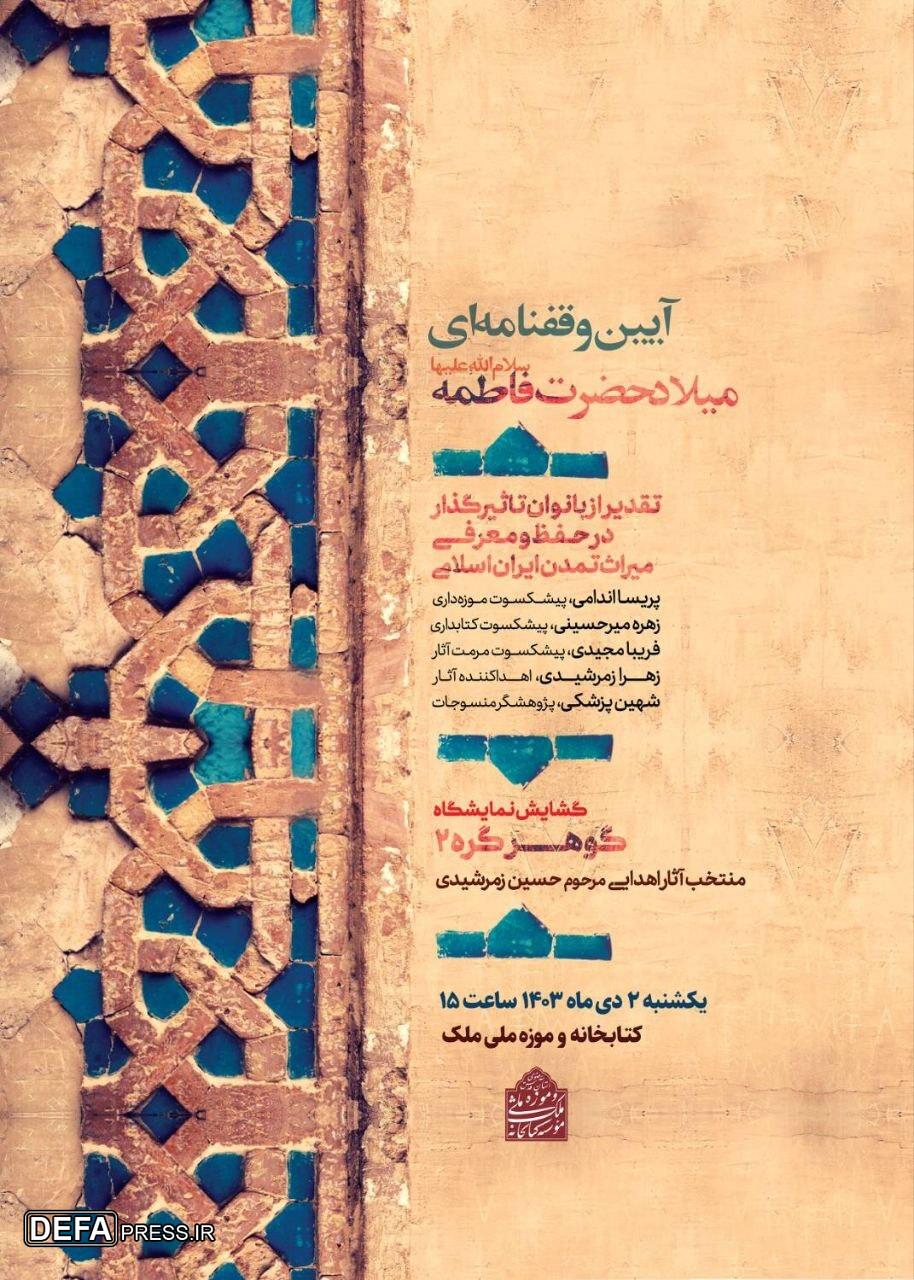 آیین وقفنامه‌ای
سلام‌الله‌علیها
میلاد حضرت فاطمه
تقدیر از بانوان تاثیرگذار
در حفظ و معرفی
میراث تمدن ایران اسلامی
پریسا اندامی، پیشکسوت موزه‌داری
زهره میرحسینی، پیشکسوت کتابداری
فریبا مجیدی، پیشکسوت مرمت آثار
زهرا زمرشیدی، اهداکننده آثار
شهین پزشکی، پژوهشگر منسوجات
گشایش نمایشگاه
گوهر گره ۲
منتخب آثار اهدایی مرحوم حسین زمرشیدی
یکشنبه ۲ دی ماه ۱۴۰۳ ساعت ۱۵
کتابخانه و موزه ملی ملک
آستان قدس رضوی
و موزه ملی
ملک
مؤسسه کتابخانه
DEFAPRESS.IR